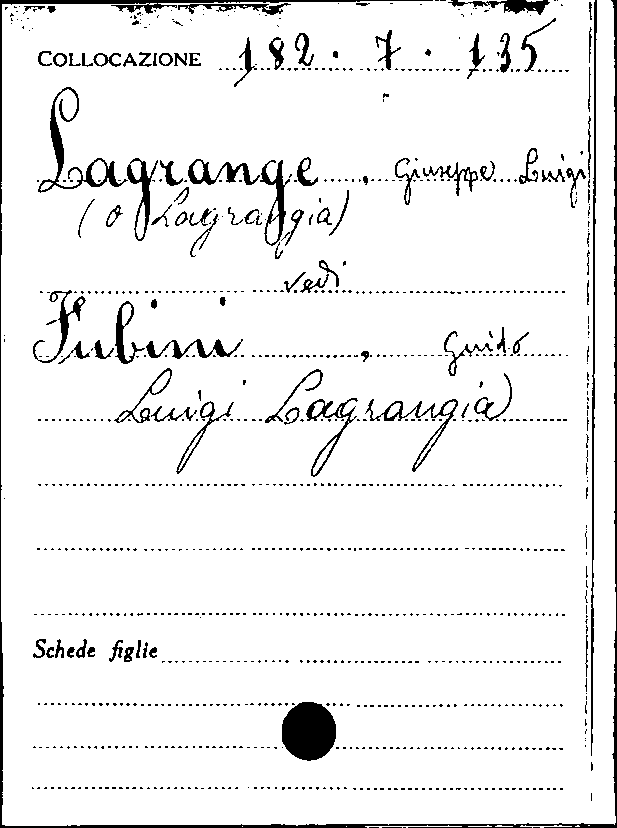 COLLOCAZIONE 182 . 7 . 135
Lagrange , Giuseppe Luigi
(o Lagrangia)
vedi
Fubini , Guido
Luigi Lagrangia
Schede figlie